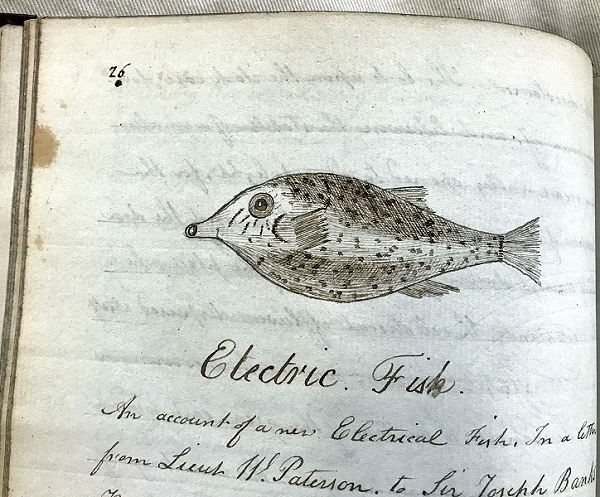 26
Electric. Fish.
An account of a new Electrical Fish. In a
from Lieut W. Paterson. to Sir Joseph Banks